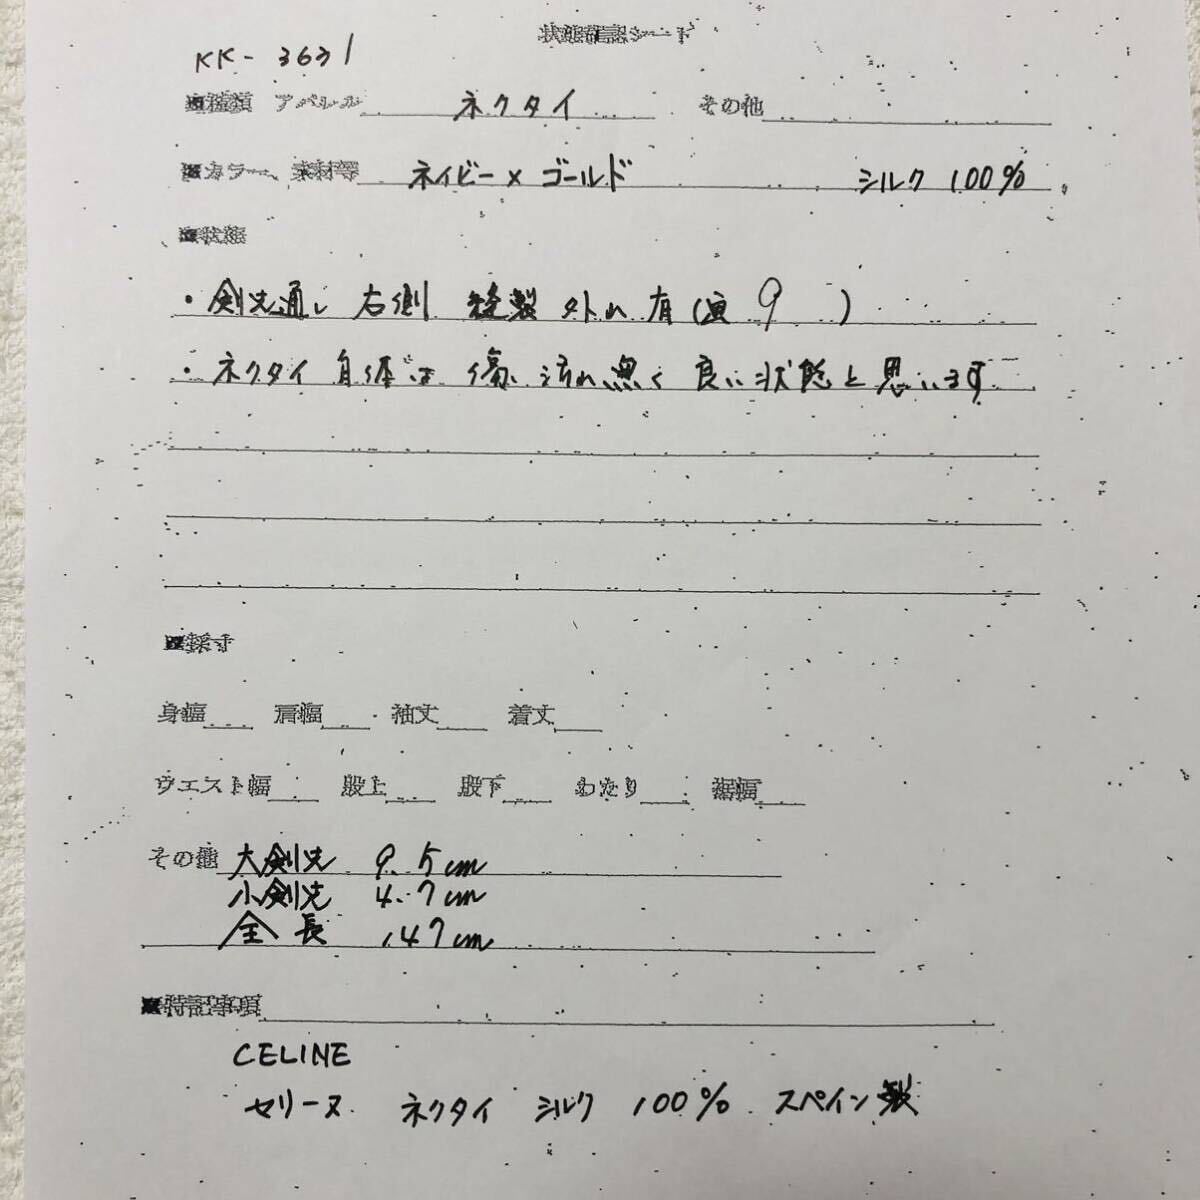 状態確認シート
KK-3631
■種類 アパレル ネクタイ その他
■カラー、素材等 ネイビー×ゴールド シルク 100%
■状態
・剣先通し 右側 縫製 外れ 有(画 9 )
・ネクタイ自体は傷い汚れ無く良い状態と思います
■採寸
身幅 肩幅 袖丈 着丈
ウエスト幅 股上 股下 わたり 裾幅
その他 大剣先 9.5cm
小剣先 4.7cm
全長 147cm
■特記事項
CELINE
セリーヌ ネクタイ シルク 100% スペイン製